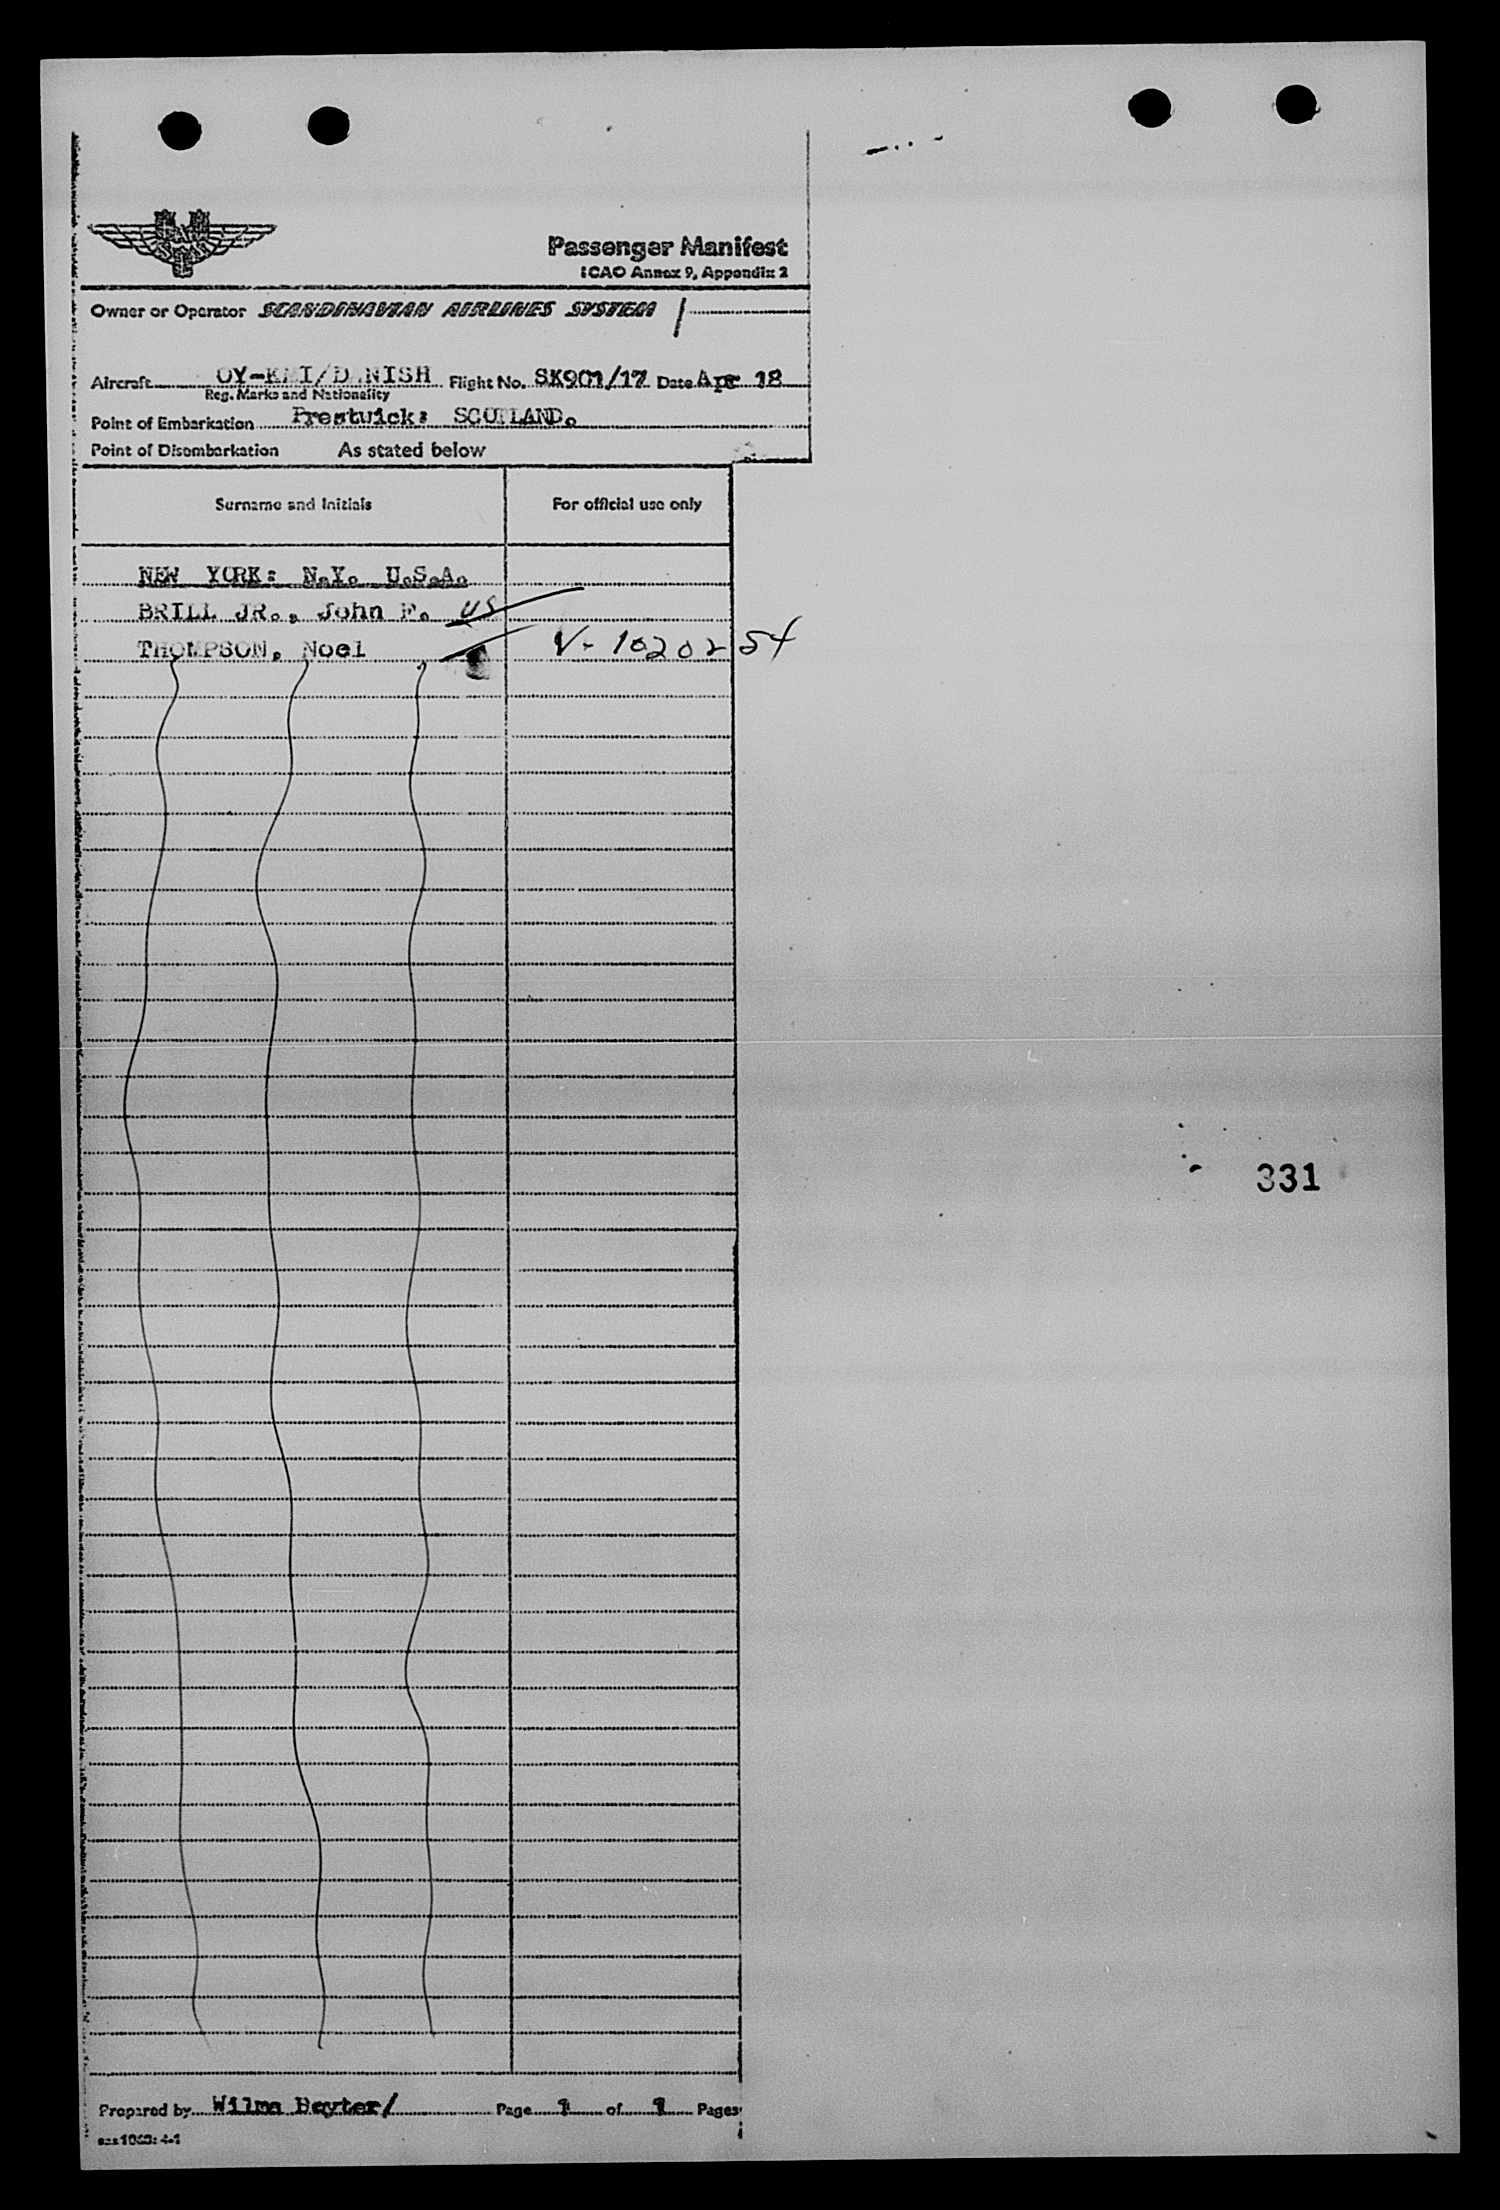 Passenger Manifest
ICAO Annex 9, Appendix 2
Owner or Operator SCANDINAVIAN AIRLINES SYSTEM
Aircraft Flight No. SK901/17 Date Apr 18
Reg. Marks and Nationality
Point of Embarkation Prestwick: SCOTLAND.
Point of Disembarkation As stated below
Surname and Initials For official use only
NEW YORK: N.Y. U.S.A.
BRILL JR., John F. US
THOMPSON, Noel V-1020254
331
Prepared by Wilma Page 1 of 1 Pages